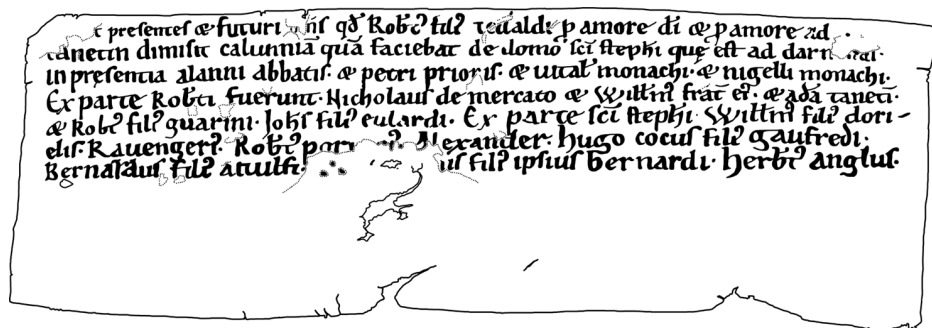 presentes & futuri qđ Robt̄ fili᾽ tedaldi p amore di & p amore ad
tanetin dimisit calunniā quā faciebat de domo sc̄i stephi quę est ad
in presentia alanni abbatis. & petri prioris. & uital᾽ monachi. & nigelli monachi.
Ex parte Robti fuerunt. Nicholaus de mercato & Willm̄ frat᾽ ei᾽. & adā taneti.
& Robt̄ fili᾽ guarini. Johs fili᾽ eulardi. Ex parte sc̄i stephi. Willm̄ fili᾽ dori-
elis. Rauenger᾽. Robt̄ Alexander. Hugo cocus fili᾽ gaufredi.
Bernardus fili᾽ atulfi. fili᾽ ipsius bernardi. herbt̄ anglus.